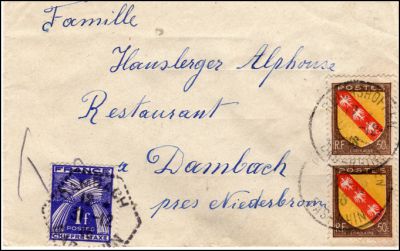 Famille
Hausberger Alphonse
Restaurant
à Dambach
près Niederbronn
POSTES
RF LORRAINE 50c
POSTES
RF 50c
FRANCE
1F
POSTES
CHIFFRE-TAXE